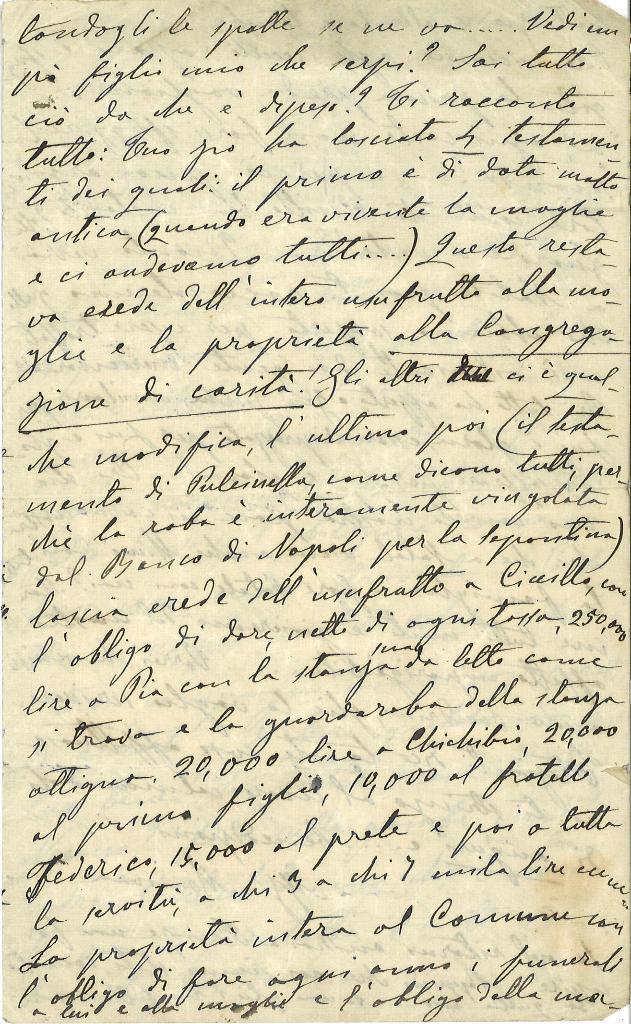 tandogli le spalle se ne va..... Vedi un
pò figlio mio che serpi? Sai tutto
ciò da che è dipeso? Ti racconto
tutto: Tuo zio ha lasciato 4 testamen
ti dei quali: il primo è di data molto
antica, (quando era vivente la moglie
e ci andavamo tutti....) Questo resta-
va erede dell'intero usufrutto alla mo-
glie e la proprietà alla Congrega-
zione di carità! Gli altri ci è qual-
che modifica, l'ultimo poi (il testa-
mento di Pulcinella, come dicono tutti, per-
chè la roba è interamente vingolata
dal Banco di Napoli per la sepontina)
lascia erede dell'usufratto a Ciccillo, con
l'obligo di dare, netto di ogni tassa, 250,000
lire a Pia con la sua stanza da letto come
si trova e la guardaroba della stanza
attigua. 20,000 lire a Chichibio, 20,000
al primo figlio, 10,000 al fratello
Federico, 15,000 al prete e poi a tutta
la servitù, a chi 3 a chi 7 mila lire
La proprietà intera al Comune con
l'obligo di fare ogni anno i funerali
a lui e alla moglie e l'obligo della